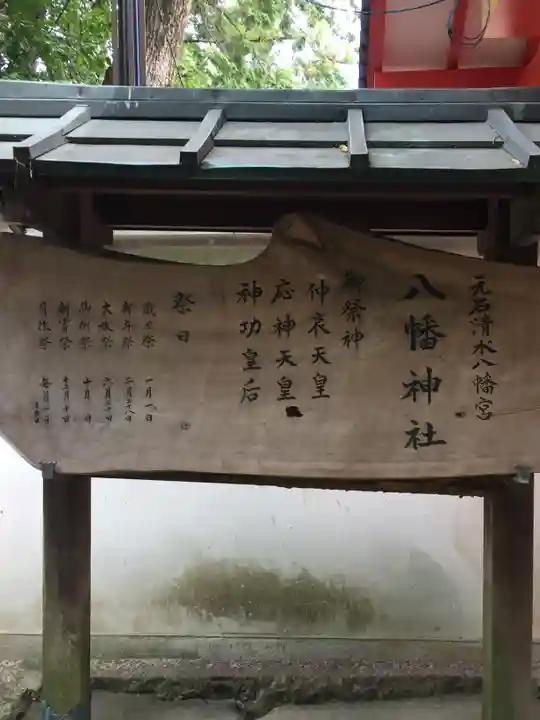 元石清水八幡宮
八幡神社
御祭神
仲哀天皇
応神天皇
神功皇后
祭日
歳旦祭 一月一日
祈年祭
大祓祭
例祭 十月
新嘗祭
月次祭 毎月一日